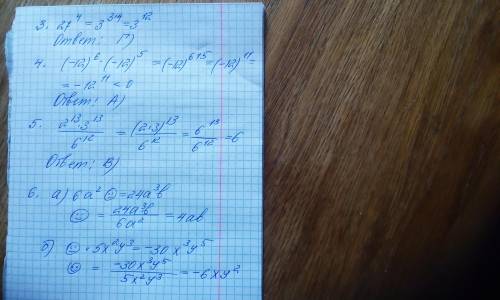 3. 27⁴ = 3^3·4 = 3¹²
Ответ: Г)
4. (-12)⁶ · (-12)⁵ = (-12)^6+5 = (-12)¹¹ =
= -12¹¹ < 0
Ответ: А)
5. 2¹³·3¹³ / 6¹² = (2·3)¹³ / 6¹² = 6¹³ / 6¹² = 6
Ответ: В)
6. а) 6a² ☺ = 24a³b
☺ = 24a³b / 6a² = 4ab
б) ☺ · 5x²y³ = -30x³y⁵
☺ = -30x³y⁵ / 5x²y³ = -6xy²